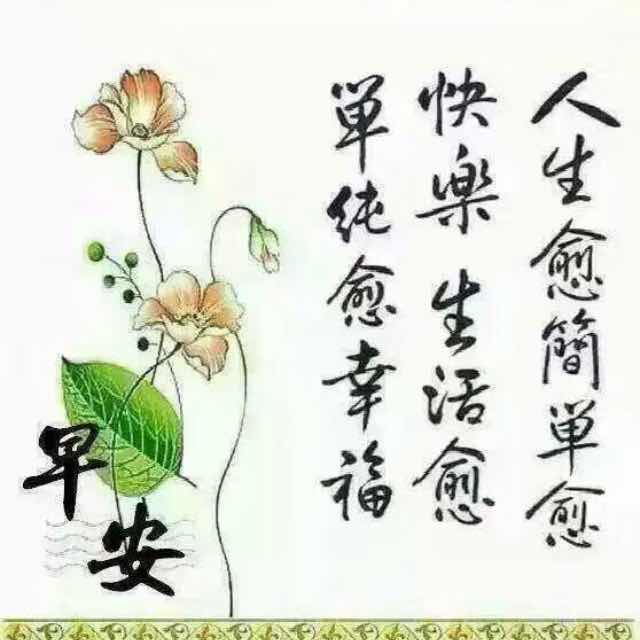 人生愈簡単愈
快樂 生活愈
単纯愈幸福
早安